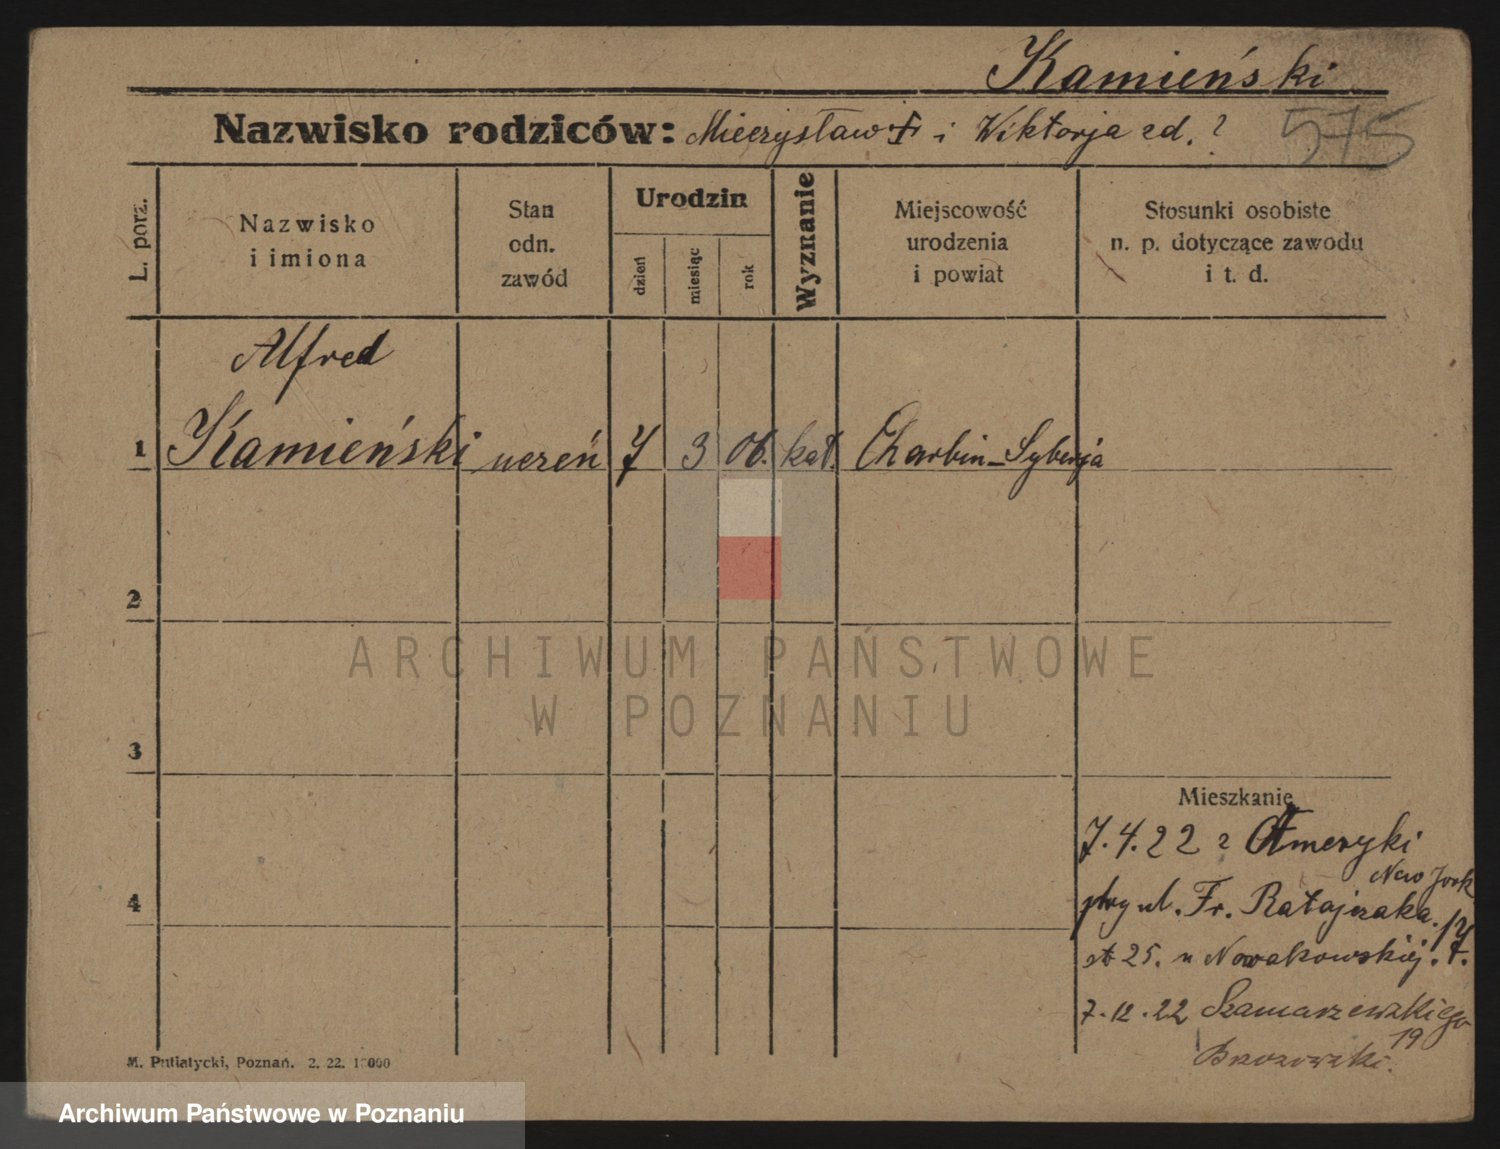 Kamieński
Nazwisko rodziców: Mieczysław † i Wiktorja zd. ?
575
L. porz.
Nazwisko
i imiona
Stan
odn.
zawód
Urodzin
dzień
miesiąc
rok
Wyznanie
Miejscowość
urodzenia
i powiat
Stosunki osobiste
n. p. dotyczące zawodu
i t. d.
Alfred
1 Kamieński uczeń 7 3 06. kat. Charbin-Syberja
2
3
4
Mieszkanie
7.4.22 z Ameryki
New Jork
przy ul. Fr. Ratajczaka 17.
25. u Nowakowskiej.
7.12.22 Szamarzewskiego
19
Brzozowski.
M. Putiatycki, Poznań. 2. 22.
ARCHIWUM PAŃSTWOWE
W POZNANIU
Archiwum Państwowe w Poznaniu